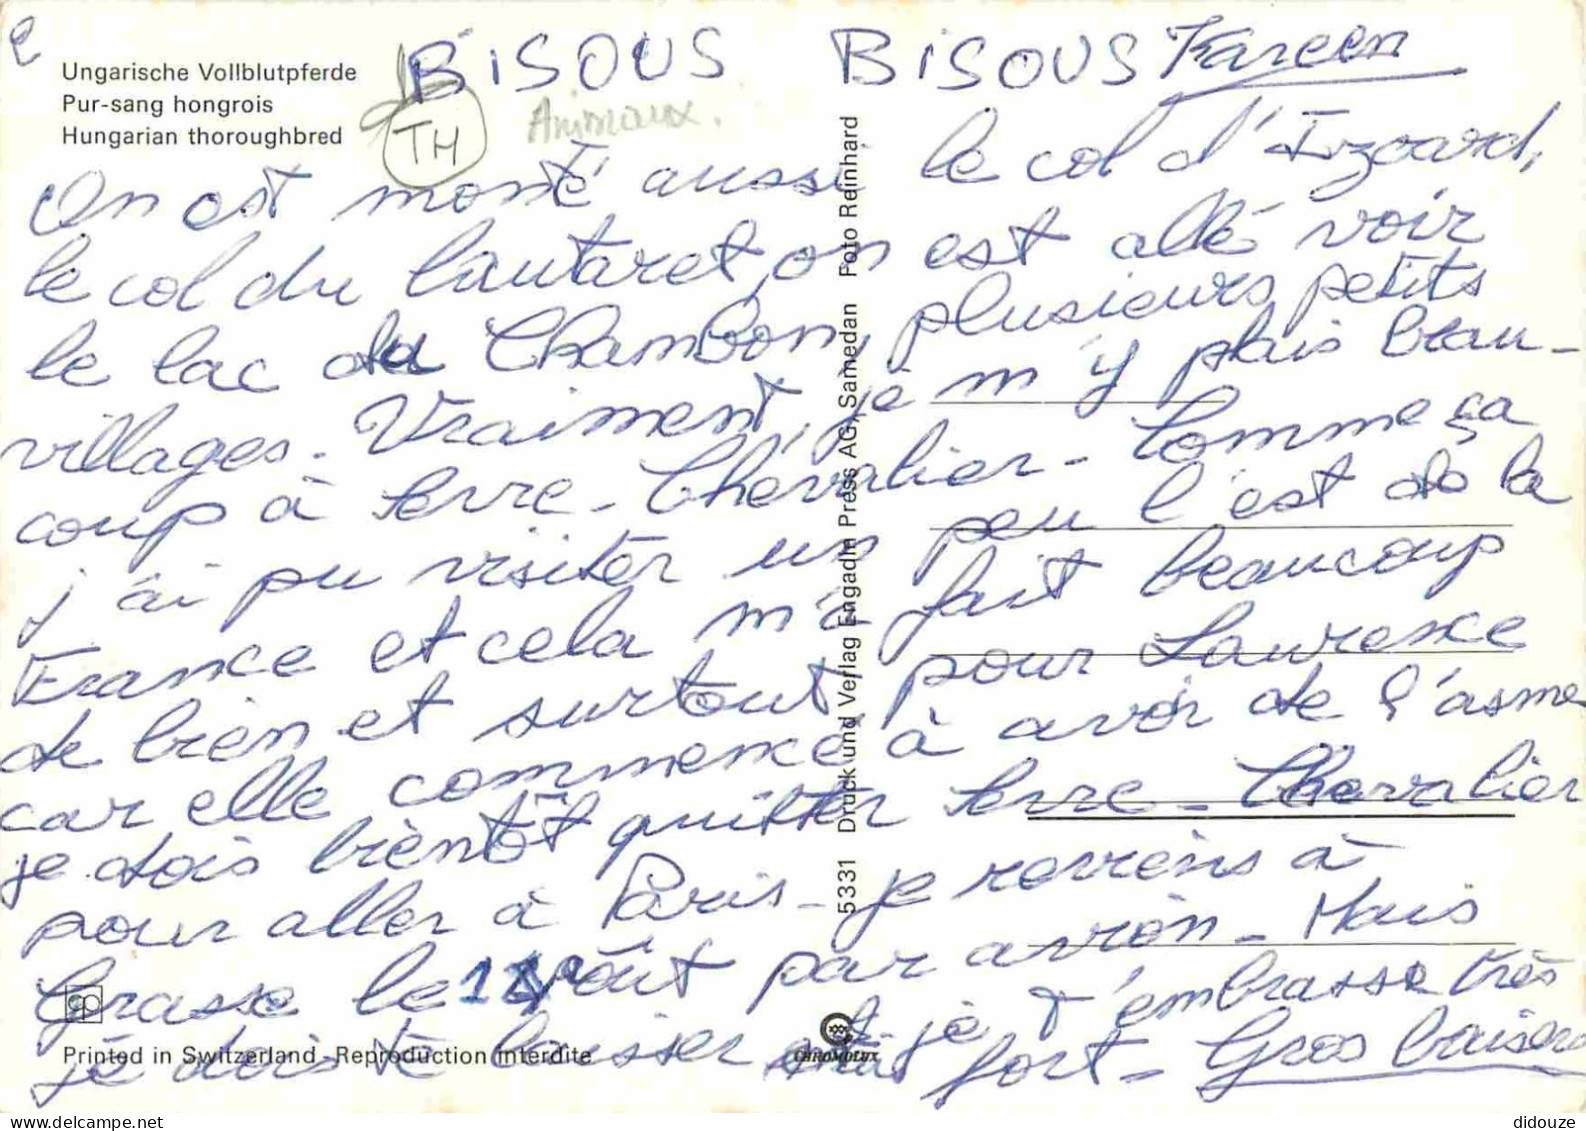 Ungarische Vollblutpferde
Pur-sang hongrois
Hungarian thoroughbred
BISOUS BISOUS Kareen
TH
Animaux.
On est monté aussi le col d'Izoard,
le col du Lautaret, on est allé voir
le lac du Chambon, plusieurs petits
villages. Vraiment, je m'y plais beau-
coup à Serre-Chevalier. Comme ça
j'ai pu visiter un peu l'est de la
France et cela m'a fait beaucoup
de bien et surtout pour Laurence
car elle commence à avoir de l'asme
je dois bientôt quitter Serre-Chevalier
pour aller à Paris. je reviens à
Grasse le août par avion. Mais
je dois te laisser et je t'embrasse très
fort. Gros baisers
5331 Druck und Verlag Engadin Press AG, Samedan Foto Reinhard
Printed in Switzerland - Reproduction interdite
CHROMOLUX
didouze